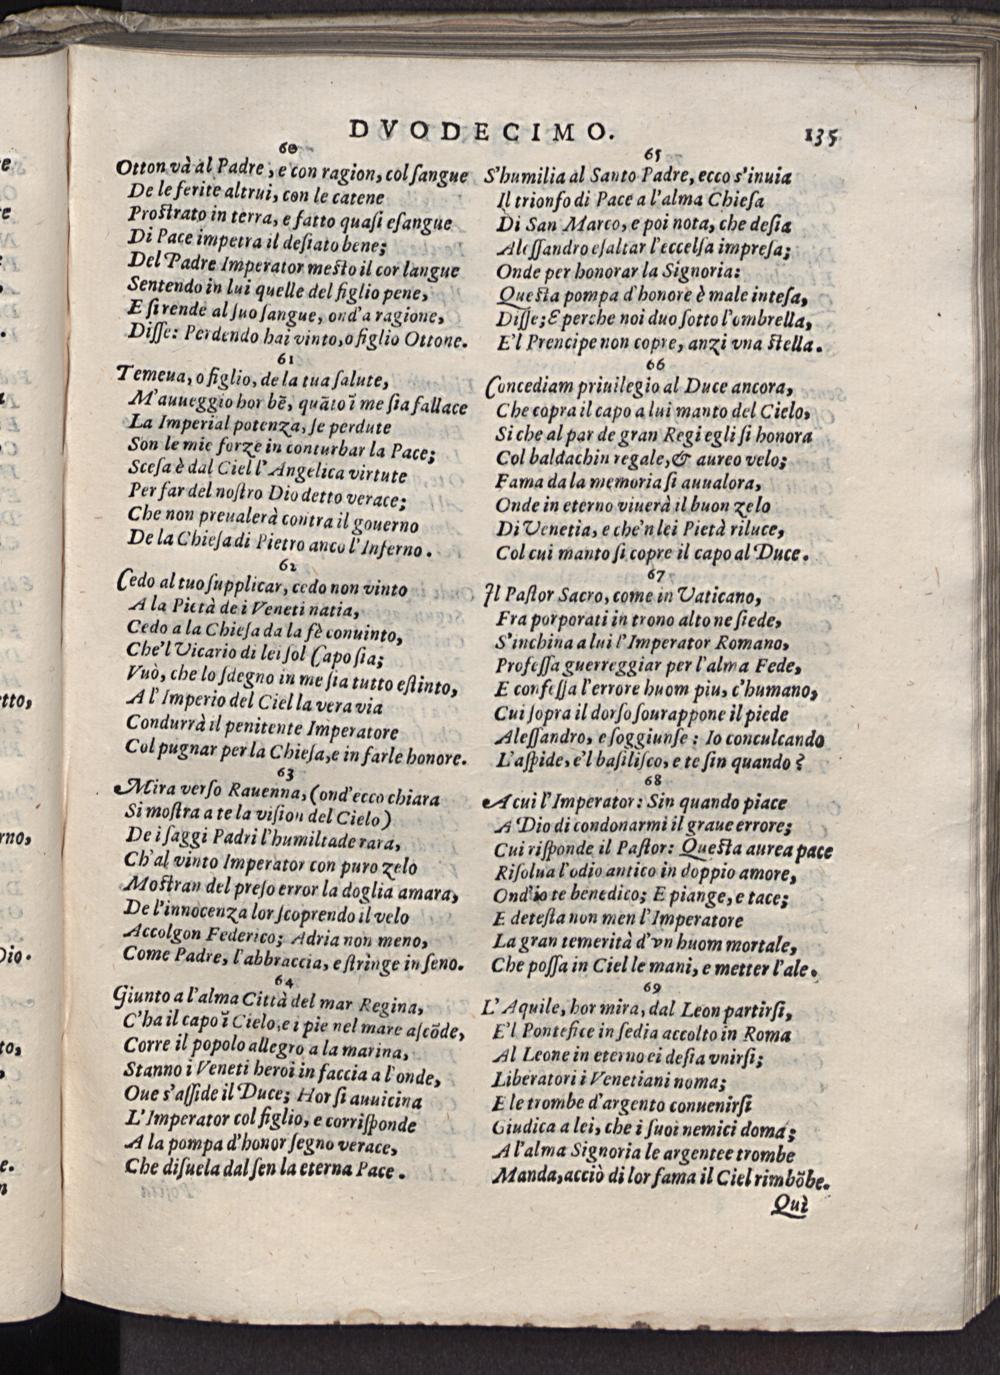 DVODECIMO. 135
60
Otton và al Padre, e con ragion, col ſangue
De le ferite altrui, con le catene
Proſtrato in terra, e fatto quaſi eſangue
Di Pace impetra il deſiato bene;
Del Padre Imperator meſto il cor langue
Sentendo in lui quelle del figlio pene,
E ſi rende al ſuo ſangue, ond'a ragione,
Diſſe: Perdendo hai vinto, o figlio Ottone.
61
Temeua, o figlio, de la tua ſalute,
M'auueggio hor bẽ, quãto ĩ me ſia fallace
La Imperial potenza, ſe perdute
Son le mie forze in conturbar la Pace;
Sceſa è dal Ciel l'Angelica virtute
Per far del noſtro Dio detto verace;
Che non preualerà contra il gouerno
De la Chieſa di Pietro anco l'Inferno.
62
Cedo al tuo ſupplicar, cedo non vinto
A la Pietà de i Veneti natia,
Cedo a la Chieſa da la fè conuinto,
Che'l Vicario di lei ſol Capo ſia;
Vuò, che lo ſdegno in me ſia tutto eſtinto,
A l'Imperio del Ciel la vera via
Condurrà il penitente Imperatore
Col pugnar per la Chieſa, e in farle honore.
63
Mira verſo Rauenna, (ond'ecco chiara
Si moſtra a te la viſion del Cielo)
De i ſaggi Padri l'humiltade rara,
Ch'al vinto Imperator con puro zelo
Moſtran del preſo error la doglia amara,
De l'innocenza lor ſcoprendo il velo
Accolgon Federico; Adria non meno,
Come Padre, l'abbraccia, e ſtringe in ſeno.
64
Giunto a l'alma Città del mar Regina,
C'ha il capo ĩ Cielo, e i pie nel mare aſcõde,
Corre il popolo allegro a la marina,
Stanno i Veneti heroi in faccia a l'onde,
Oue s'aſſide il Duce; Hor ſi auuicina
L'Imperator col figlio, e corriſponde
A la pompa d'honor ſegno verace,
Che diſuela dal ſen la eterna Pace.
65
S'humilia al Santo Padre, ecco s'inuia
Il trionfo di Pace a l'alma Chieſa
Di San Marco, e poi nota, che deſia
Aleſſandro eſaltar l'eccelſa impreſa;
Onde per honorar la Signoria:
Queſta pompa d'honore è male inteſa,
Diſſe; & perche noi duo ſotto l'ombrella,
E'l Prencipe non copre, anzi vna ſtella.
66
Concediam priuilegio al Duce ancora,
Che copra il capo a lui manto del Cielo,
Si che al par de gran Regi egli ſi honora
Col baldachin regale, & aureo velo;
Fama da la memoria ſi auualora,
Onde in eterno viuerà il buon zelo
Di Venetia, e che'n lei Pietà riluce,
Col cui manto ſi copre il capo al Duce.
67
Il Paſtor Sacro, come in Vaticano,
Fra porporati in trono alto ne ſiede,
S'inchina a lui l'Imperator Romano,
Profeſſa guerreggiar per l'alma Fede,
E confeſſa l'errore huom piu, c'humano,
Cui ſopra il dorſo ſourappone il piede
Aleſſandro, e ſoggiunſe: Io conculcando
L'aſpide, e'l baſiliſco, e te ſin quando?
68
A cui l'Imperator: Sin quando piace
A Dio di condonarmi il graue errore;
Cui riſponde il Paſtor: Queſta aurea pace
Riſolua l'odio antico in doppio amore,
Ond'io te benedico; E piange, e tace;
E deteſta non men l'Imperatore
La gran temerità d'vn huom mortale,
Che poſſa in Ciel le mani, e metter l'ale.
69
L'Aquile, hor mira, dal Leon partirſi,
E'l Pontefice in ſedia accolto in Roma
Al Leone in eterno ei deſia vnirſi;
Liberatori i Venetiani noma;
E le trombe d'argento conuenirſi
Giudica a lei, che i ſuoi nemici doma;
A l'alma Signoria le argentee trombe
Manda, acciò di lor fama il Ciel rimbõbe.
Quì